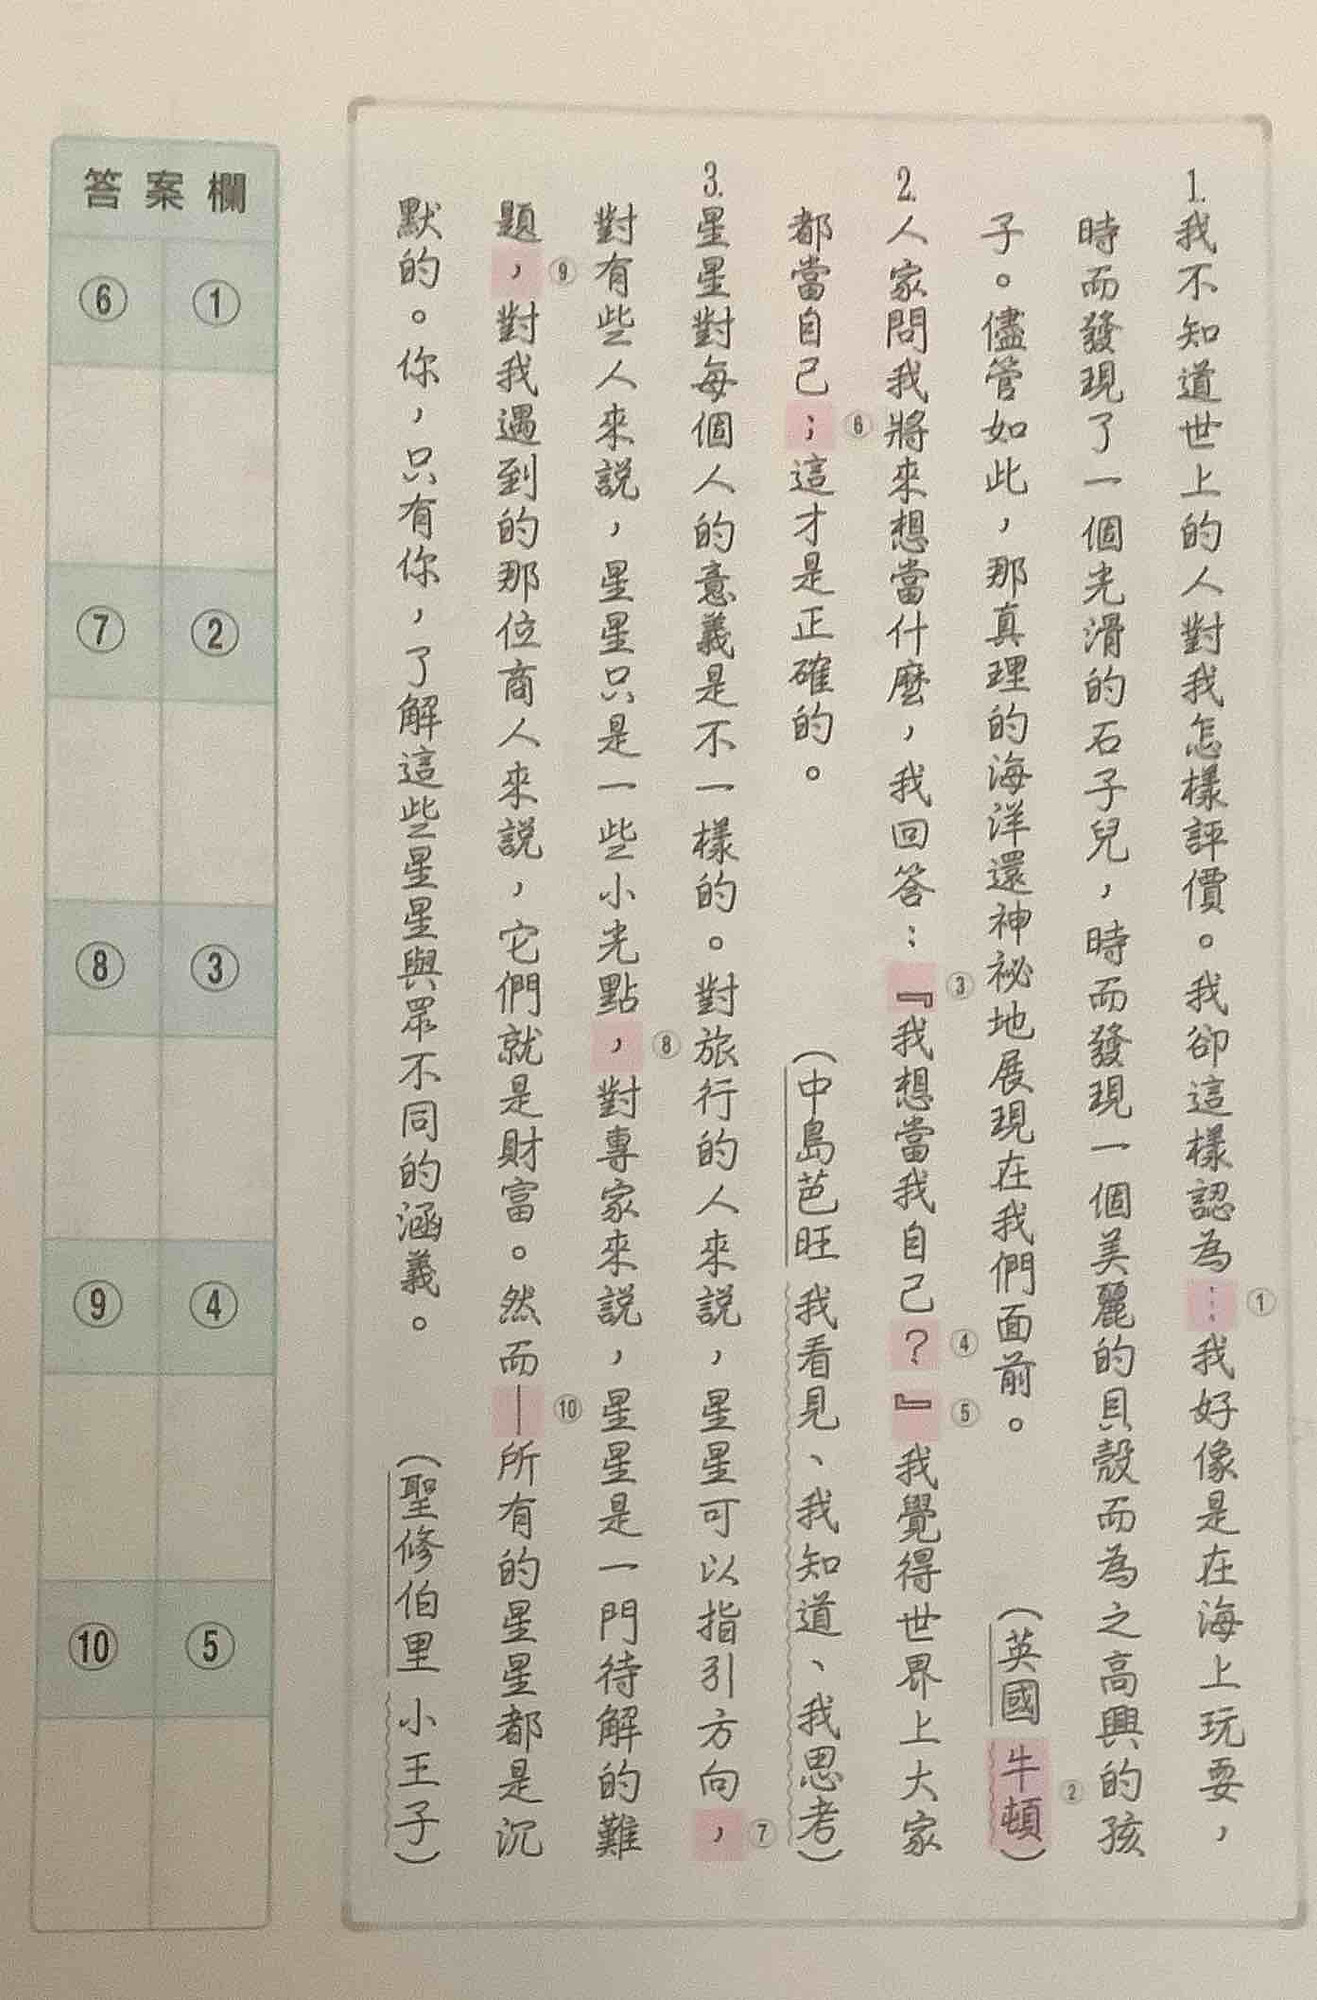 1.我不知道世上的人對我怎樣評價。我卻這樣認為…我好像是在海上玩耍，
①
時而發現了一個光滑的石子兒，時而發現一個美麗的貝殼而為之高興的孩
子。儘管如此，那真理的海洋還神祕地展現在我們面前。（英國牛頓）
②
2.人家問我將來想當什麼，我回答：『我想當我自己？』我覺得世界上大家
③
④
⑤
都當自己；這才是正確的。（中島芭旺 我看見、我知道、我思考）
⑥
3.星星對每個人的意義是不一樣的。對旅行的人來說，星星可以指引方向，
⑦
對有些人來說，星星只是一些小光點，對專家來說，星星是一門待解的難
⑧
題，對我遇到的那位商人來說，它們就是財富。然而—所有的星星都是沉
⑨
⑩
默的。你，只有你，了解這些星星與眾不同的涵義。（聖修伯里 小王子）
答案欄
① ⑥
② ⑦
③ ⑧
④ ⑨
⑤ ⑩